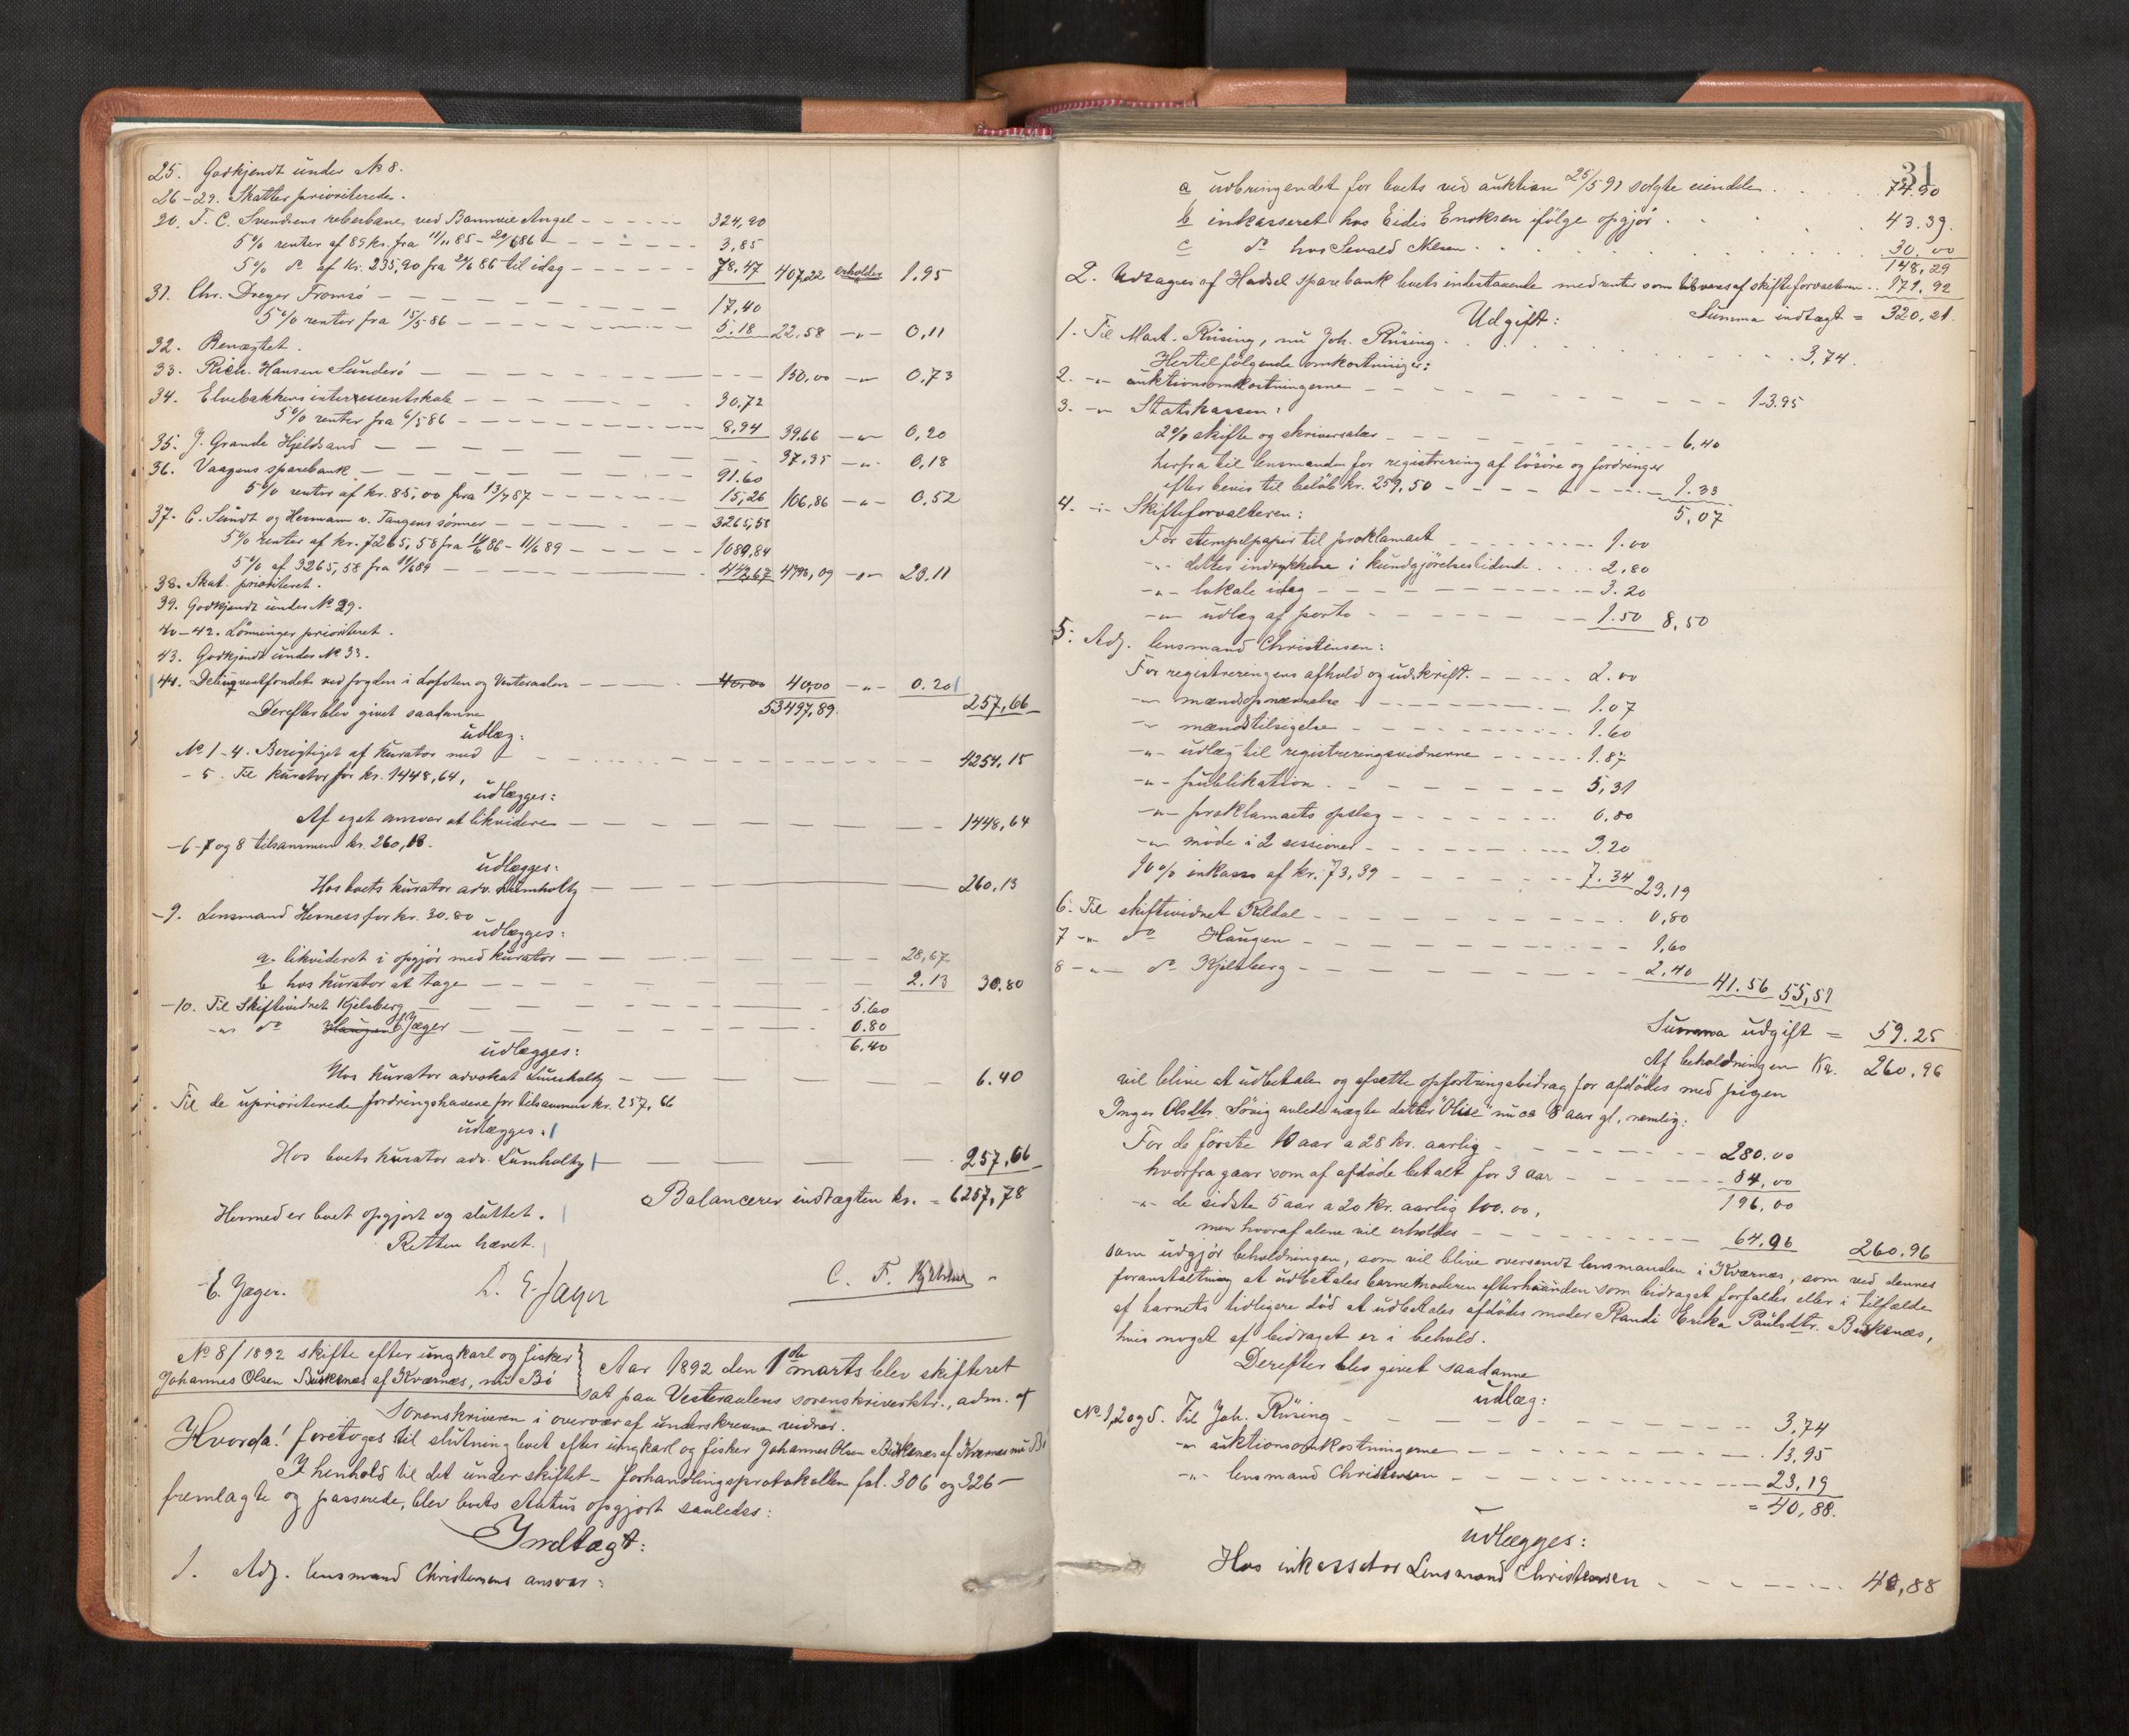 25. Godkjendt under No 8.
26-29. Skatter prioriterede.
20. T. C. Svendsens reberbane, ved Bammeie Angel 324,90
5% renter af 89 kr. fra 11/11 85 - 20/6 86 3,85
5% do af kr. 235,90 fra 20/6 86 til idag 78,47 407,22 erholder 1,95
31. Chr. Dreyer Tromsø 17,40
5% renter fra 15/5 86 5.18 22.58 -"- 0,11
32. Benægtet.
33. Rich. Hansen Sunderö 150,00 -"- 0,73
34. Elvebakkens interessentskab 30.72
5% renter fra 6/5 86 8,94 39.66 -"- 0,20
35. J. Grande Hjeldsand 37,35 -"- 0,18
36. Vaagens sparebank 91.60
5% renter af kr. 85,00 fra 13/7 87 15,26 106,86 -"- 0,52
37. C. Sundt og Hermann v. Tangens sønner 3265,58
5% renter af kr. 7265,58 fra 11/6 86 - 11/6 89 1089,84
5% af 3265,58 fra 11/6 89 442,67 4798,09 -"- 23.11
38. Skat. prioriteret.
39. Godkjendt under No 29.
40-42. Lønninger prioriteret.
43. Godkjendt under No 33.
44. Delinqventfondet ved fogden i Lofoten og Vesteraalen 40,00 40,00 -"- 0.20
53497,89. 257,66
Derefter blev givet saadanne
udlæg:
No 1-4. Berigtiget af kurator med 4254,15
- 5. Til kurator for kr. 1448,64,
udlægges:
Af eget ansvar at likvidere 1448,64
-6-7 og 8 tilsammen kr. 260,13.
udlægges:
Hos boets kurator adv. Lumholtz 260,13
-9. Lensmand Hemess for kr. 30.80
udlægges:
a. likvideret i opgjør med kurator 28,67
b hos kurator at tage 2.13 30.80
-10. Til Skiftevidnet Kjelsberg 5.60
-"- do Haugen E Jæger 0.80
6.40
udlægges:
Hos kurator advokat Lumholtz 6.40
Til de uprioriterede fordringshavere for tilsammen kr. 257,66
udlægges.
Hos boets kurator adv. Lumholtz 257,66
Balancerer indtægten kr. = 6257,78
Hermed er boet opgjort og sluttet.
Retten hævet.
E. Jæger. L. E. Jager C. F.
No 8/1892 skifte efter ungkarl og fisker
Johannes Olsen Buksnes af Kværnes, nu Bö
Aar 1892 den 1ste marts blev skifteret
sat paa Vesteraalens sorenskriverktr., adm. af
Sorenskriveren i overvær af underskrevne vidner.
Hvorda! foretoges til slutning boet efter ungkarl og fisker Johannes Olsen Buksnes af Kværnes nu Bö
I henhold til det under skiftet - forhandlingsprotokollen fol. 306 og 326 -
fremlagte og passerede, blev boets status opgjort saaledes:
Indtægt:
1. Adj. lensmand Christensens ansvar:
31
a udbringendet for boets ved auktion 25/5 91 solgte eiendele 74.90
b inkasseret hos Eidis Enoksen ifölge opgjör 43.39.
c do hos Sevald Nilsen 30.00
148,29
2. Udtages af Hadsel sparebank boets indestaaende med renter som tilvares af skifteforvalteren 171.92
Summa indtægt = 320,21.
Udgift:
1. Til Mart. Rüsing, nu Joh. Rüsing 3,74.
Hertil følgende omkostninger:
2. -"- auktionsomkostningerne 13.95
3. -"- Statskassen:
2% skifte og skriversalær 6.40
herfra til lensmanden for registrering af lösöre og fordringer
efter bevis til belöb kr. 259,50 1.33
5,07
4. -"- Skifteforvalteren:
For stempelpapir til proklamaet 1.00
-"- dettes indrykkelse i kundgjörelsestidende 2,80
-"- lokale idag 3.20
-"- udlæg af porto 1.50 8,50
5. Adj. lensmand Christensen:
For registreringens afhold og udskrift 2.00
-"- mændsopnævnelse 1.07
-"- mændstilsigelse 1.60
-"- udlæg til registreringsvidnerne 1.87
-"- publikation 5,31
-"- proklamaets opslag 0.80
-"- möde i 2 sessioner 3.20
10% inkasso af kr. 73,39 7.34 23,19
6. Til skiftevidnet Rildal 0,80
7 -"- do Haugen 1,60
8 -"- do Kjelsberg 2.40 41.56 55,51
Summa udgift = 59.25
Af beholdningen Kr. 260.96
vil blive at udbetale og afsætte opfostringsbidrag for afdödes med pigen
Inger Olsdtr. Sörig avlede uægte datter "Olise" nu ca 8 aar gl., nemlig:
For de förste 10 aar a 28 kr. aarlig 280.00
hvorfra gaar som af afdöde betalt for 3 aar 84,00
196,00
-"- de sidste 5 aar a 20 kr. aarlig 100.00,
men hvoraf alene vil erholdes 64.96 260.96
som udgjör beholdningen, som vil blive oversendt lensmanden i Kværnes, som ved dennes
foranstaltning at udbetales barnemoderen efterhaanden som bidraget forfalder eller i tilfælde
af barnets tidligere död at udbetales afdödes moder Randi Erika Paulsdtr. Buksnes,
hvis noget af bidraget er i behold.
Derefter blev givet saadanne
udlæg:
No 1, 2 og 5. Til Joh. Rüsing 3,74
-"- auktionsomkostningerne 13,95
-"- lensmand Christensen 23,19
= 40,88.
udlægges:
Hos inkassator Lensmand Christensen 40,88